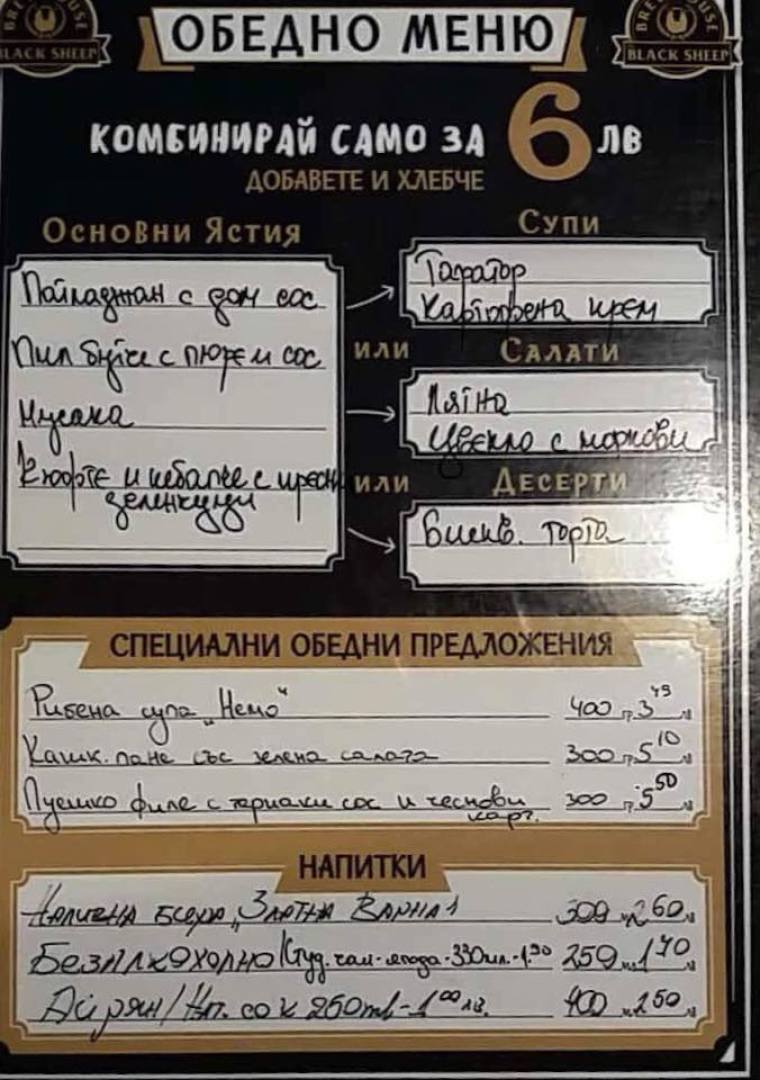 BREWHOUSE
BLACK SHEEP
ОБЕДНО МЕНЮ
BREWHOUSE
BLACK SHEEP
КОМБИНИРАЙ САМО ЗА 6 ЛВ
ДОБАВЕТЕ И ХЛЕБЧЕ
Основни Ястия
Патладжан с дом сос
Пил бутче с пюре и сос
Мусака
Кюфте и кебапче с пресни
зеленчуци
Супи
Таратор
Картофена крем
или
Салати
Лятна
Цвекло с моркови
или
Десерти
Бискв. торта
СПЕЦИАЛНИ ОБЕДНИ ПРЕДЛОЖЕНИЯ
Рибена супа "Немо" 400 г. 3 49
Кашк. пане със зелена салата 300 г. 5 10
Пуешко филе с териаки сос и чеснови 300 г. 5 50
карт.
НАПИТКИ
Наливна бира „Златна Варна" 300 мл 2 60 лв
Безалкохолно/Студ. чай-ягода-330мл.-1.90 250 мл 1 70 лв
Айрян/Нат. сок 250ml-1 00 лв. 400 мл 2 50 лв